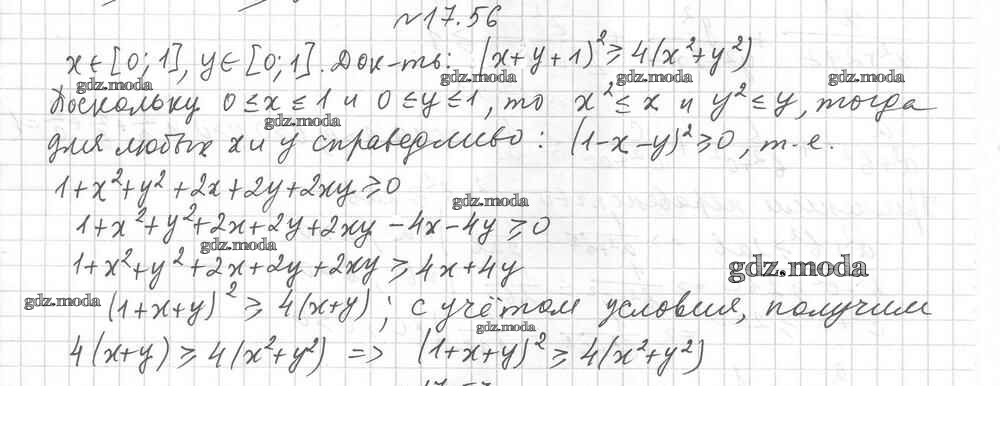 №17.56
x∈[0;1], y∈[0;1]. Док-ть: (x+y+1)²≥4(x²+y²)
gdz.moda gdz.moda gdz.moda gdz.moda
Поскольку 0≤x≤1 и 0≤y≤1, то x²≤x и y²≤y, тогда
gdz.moda
для любых x и y справедливо: (1-x-y)²≥0, т.е.
1+x²+y²+2x+2y+2xy≥0
gdz.moda
1+x²+y²+2x+2y+2xy-4x-4y≥0
gdz.moda
1+x²+y²+2x+2y+2xy≥4x+4y
gdz.moda
gdz.moda (1+x+y)²≥4(x+y); с учётом условия, получим
gdz.moda
4(x+y)≥4(x²+y²) => (1+x+y)²≥4(x²+y²)